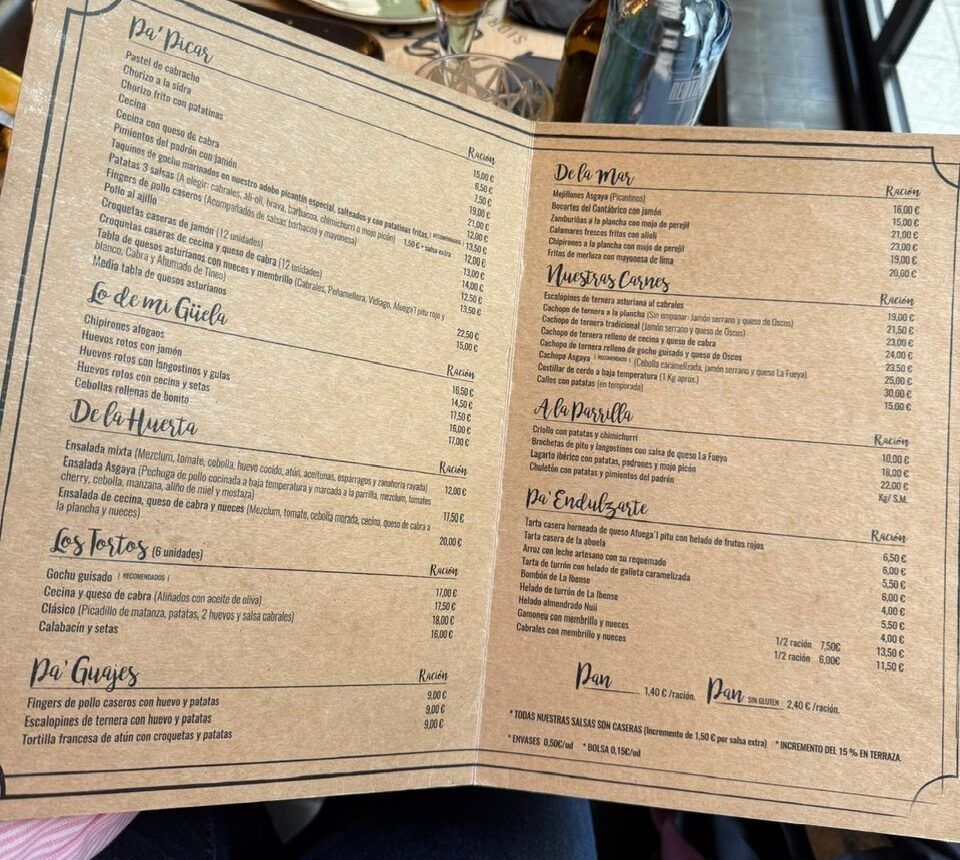 Pa' Picar
Ración
Pastel de cabracho 15,00 €
Chorizo a la sidra 6,50 €
Chorizo frito con patatinas 7,50 €
Cecina 19,00 €
Cecina con queso de cabra 21,00 €
Pimientos del padrón con jamón 12,00 €
Taquinos de gochu marinados en nuestro adobo picantín especial, salteados y con patatinas fritas, | RECOMENDADOS | 13,50 €
Patatas 3 salsas (A elegir: cabrales, ali-oli, brava, barbacoa, chimichurri o mojo picón) 1,50 € + salsa extra 12,00 €
Fingers de pollo caseros (Acompañados de salsas barbacoa y mayonesa) 13,00 €
Pollo al ajillo 14,00 €
Croquetas caseras de jamón (12 unidades) 12,50 €
Croquetas caseras de cecina y queso de cabra (12 unidades) 13,50 €
Tabla de quesos asturianos con nueces y membrillo (Cabrales, Peñamellera, Vidiago, Afuega'l pitu rojo y
blanco, Cabra y Ahumado de Tineo) 22,50 €
Media tabla de quesos asturianos 15,00 €
Lo de mi Güela
Ración
Chipirones afogaos 16,50 €
Huevos rotos con jamón 14,50 €
Huevos rotos con langostinos y gulas 17,50 €
Huevos rotos con cecina y setas 16,00 €
Cebollas rellenas de bonito 17,00 €
De la Huerta
Ración
Ensalada mixta (Mezclum, tomate, cebolla, huevo cocido, atún, aceitunas, espárragos y zanahoria rayada) 12,00 €
Ensalada Asgaya (Pechuga de pollo cocinada a baja temperatura y marcada a la parrilla, mezclum, tomates
cherry, cebolla, manzana, aliño de miel y mostaza) 17,50 €
Ensalada de cecina, queso de cabra y nueces (Mezclum, tomate, cebolla morada, cecina, queso de cabra a
la plancha y nueces) 20,00 €
Los Tortos (6 unidades)
Ración
Gochu guisado | RECOMENDADOS | 17,00 €
Cecina y queso de cabra (Aliñados con aceite de oliva) 17,50 €
Clásico (Picadillo de matanza, patatas, 2 huevos y salsa cabrales) 18,00 €
Calabacín y setas 16,00 €
Pa' Guajes
Ración
Fingers de pollo caseros con huevo y patatas 9,00 €
Escalopines de ternera con huevo y patatas 9,00 €
Tortilla francesa de atún con croquetas y patatas 9,00 €
De la Mar
Ración
Mejillones Asgaya (Picantinos) 16,00 €
Bocartes del Cantábrico con jamón 15,00 €
Zamburiñas a la plancha con mojo de perejil 21,00 €
Calamares frescos fritos con alioli 23,00 €
Chipirones a la plancha con mojo de perejil 19,00 €
Fritos de merluza con mayonesa de lima 20,00 €
Nuestras Carnes
Ración
Escalopines de ternera asturiana al cabrales 19,00 €
Cachopo de ternera a la plancha (Sin empanar: Jamón serrano y queso de Oscos) 21,50 €
Cachopo de ternera tradicional (Jamón serrano y queso de Oscos) 23,00 €
Cachopo de ternera relleno de cecina y queso de cabra 24,00 €
Cachopo de ternera relleno de gochu guisado y queso de Oscos 23,50 €
Cachopo Asgaya | RECOMENDADO | (Cebolla caramelizada, jamón serrano y queso La Fueya) 25,00 €
Costillar de cerdo a baja temperatura (1 Kg aprox.) 30,00 €
Callos con patatas (en temporada) 15,00 €
A la Parrilla
Ración
Criollo con patatas y chimichurri 10,00 €
Brochetas de pitu y langostinos con salsa de queso La Fueya 18,00 €
Lagarto ibérico con patatas, padrones y mojo picón 22,00 €
Chuletón con patatas y pimientos del padrón Kg/ S.M.
Pa' Endulzarte
Ración
Tarta casera horneada de queso Afuega'l pitu con helado de frutos rojos 6,50 €
Tarta casera de la abuela 6,00 €
Arroz con leche artesano con su requemado 5,50 €
Tarta de turrón con helado de galleta caramelizada 6,00 €
Bombón de La Ibense 4,00 €
Helado de turrón de La Ibense 5,50 €
Helado almendrado Nuii 4,00 €
Gamoneu con membrillo y nueces 1/2 ración 7,50€ 13,50 €
Cabrales con membrillo y nueces 1/2 ración 6,00€ 11,50 €
Pan 1,40 € /ración. Pan SIN GLUTEN 2,40 € /ración.
* TODAS NUESTRAS SALSAS SON CASERAS (Incremento de 1,50 € por salsa extra) * INCREMENTO DEL 15 % EN TERRAZA.
* ENVASES 0,50€/ud * BOLSA 0,15€/ud